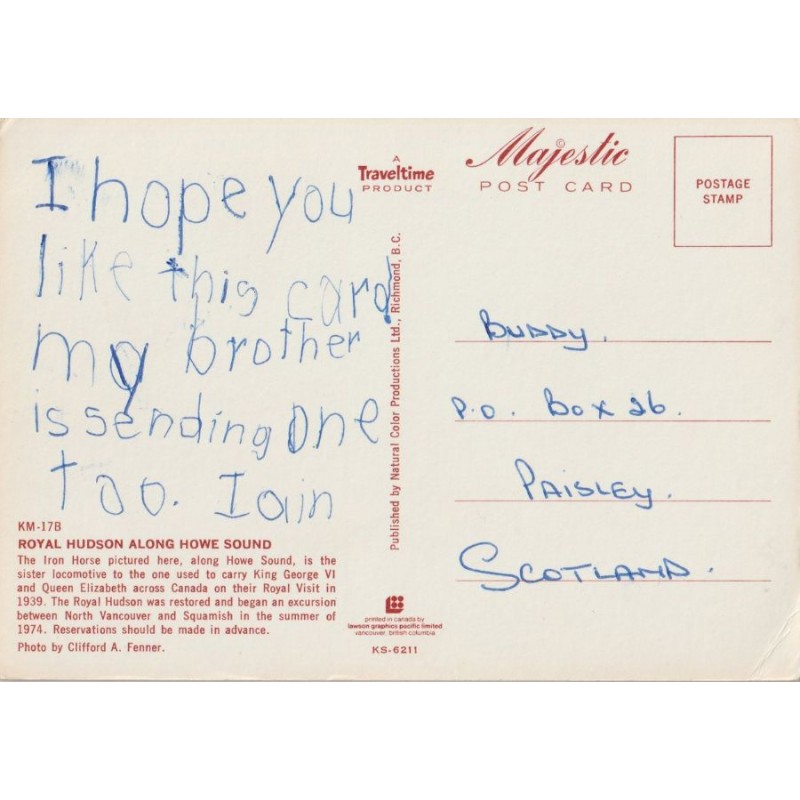 I hope you
like this card
my brother
is sending one
too. Iain
KM-17B
ROYAL HUDSON ALONG HOWE SOUND
The Iron Horse pictured here, along Howe Sound, is the
sister locomotive to the one used to carry King George VI
and Queen Elizabeth across Canada on their Royal Visit in
1939. The Royal Hudson was restored and began an excursion
between North Vancouver and Squamish in the summer of
1974. Reservations should be made in advance.
Photo by Clifford A. Fenner.
A
Traveltime
PRODUCT
Published by Natural Color Productions Ltd., Richmond, B.C.
printed in canada by
lawson graphics pacific limited
vancouver, british columbia
KS-6211
©
Majestic
POST CARD
POSTAGE
STAMP
BUDDY.
P.O. BOX 26.
PAISLEY.
SCOTLAND.